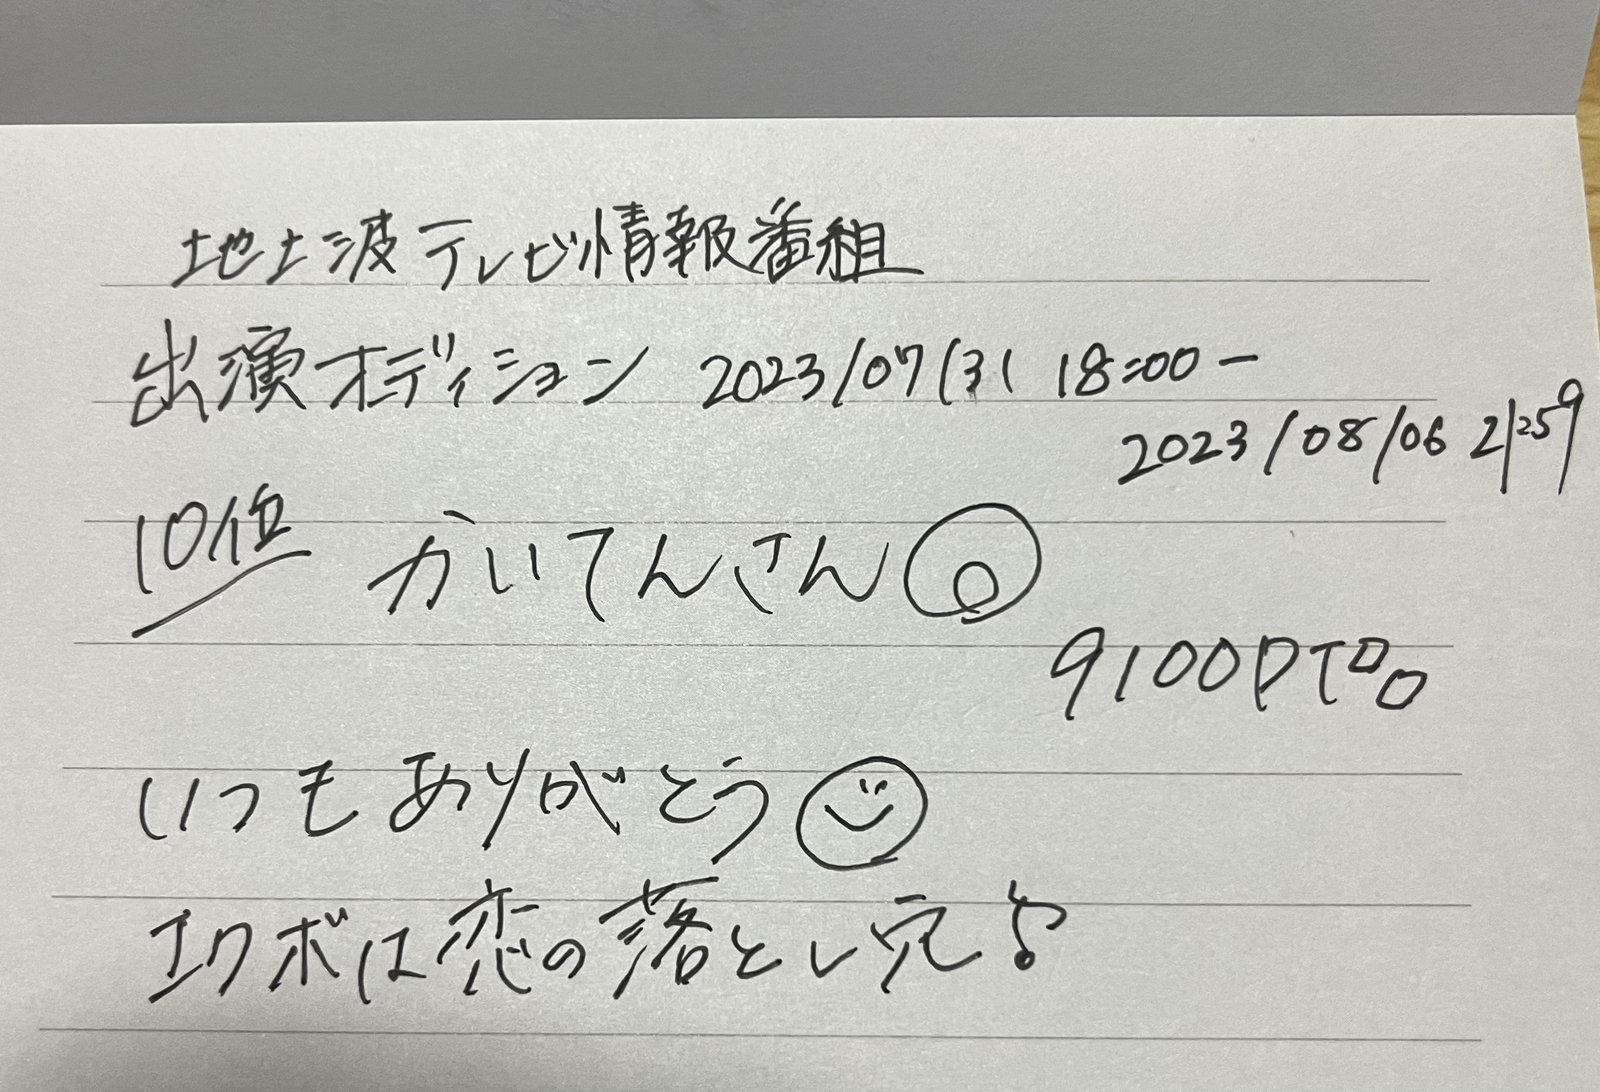 地上波テレビ情報番組
出演オーディション 2023/07/31 18:00 -
2023/08/06 21:59
10位 かいてんさん
9100PT
いつもありがとう
エクボは恋の落とし穴♪